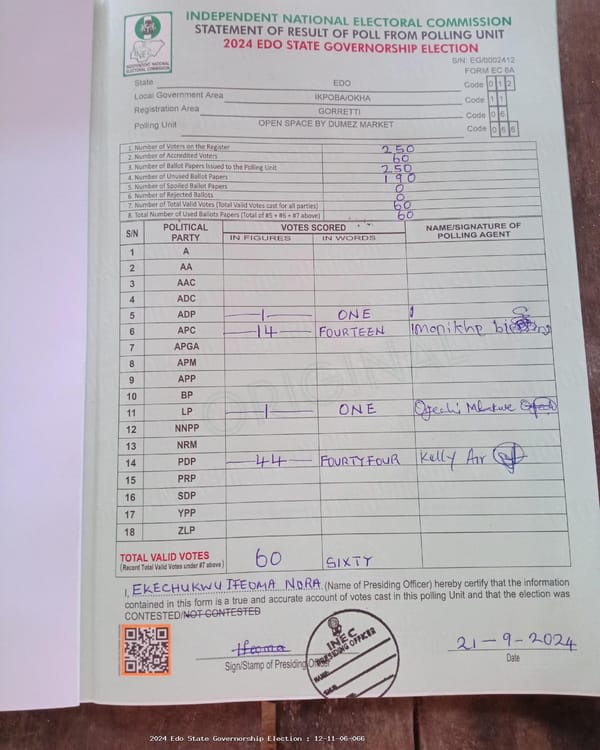 INDEPENDENT NATIONAL ELECTORAL COMMISSION
STATEMENT OF RESULT OF POLL FROM POLLING UNIT
2024 EDO STATE GOVERNORSHIP ELECTION
INEC
INDEPENDENT NATIONAL
ELECTORAL COMMISSION
S/N: EG/0002412
FORM EC 8A
State EDO Code 0 1 2
Local Government Area IKPOBA/OKHA Code 1 1
Registration Area GORRETTI Code 0 6
Polling Unit OPEN SPACE BY DUMEZ MARKET Code 0 6 6
1. Number of Voters on the Register 250
2. Number of Accredited Voters 60
3. Number of Ballot Papers Issued to the Polling Unit 250
4. Number of Unused Ballot Papers 190
5. Number of Spoiled Ballot Papers 0
6. Number of Rejected Ballots 0
7. Number of Total Valid Votes (Total Valid Votes cast for all parties) 60
8. Total Number of Used Ballots Papers (Total of #5 + #6 + #7 above) 60
S/N POLITICAL PARTY VOTES SCORED NAME/SIGNATURE OF POLLING AGENT
IN FIGURES IN WORDS
1 A
2 AA
3 AAC
4 ADC
5 ADP 1 ONE
6 APC 14 FOURTEEN
7 APGA
8 APM
9 APP
10 BP
11 LP 1 ONE
12 NNPP
13 NRM
14 PDP 44 FOURTYFOUR Kelly
15 PRP
16 SDP
17 YPP
18 ZLP
ORIGINAL
TOTAL VALID VOTES 60 SIXTY
(Record Total Valid Votes under #7 above)
I, EKECHUKWU IFEOMA NORA (Name of Presiding Officer) hereby certify that the information
contained in this form is a true and accurate account of votes cast in this polling Unit and that the election was
CONTESTED/NOT CONTESTED
Ifeoma
Sign/Stamp of Presiding Officer
INEC
PRESIDING OFFICER
NAME:
SIGN:
21-9-2024
Date
2024 Edo State Governorship Election : 12-11-06-066